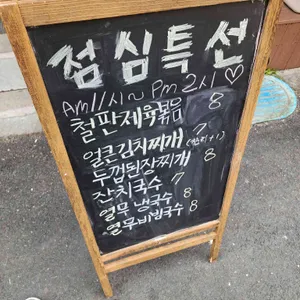 점심특선
Am11시~Pm2시♡
철판제육볶음 8
얼큰김치찌개 7
두껍된장찌개 8
잔치국수 7
열무냉국수 8
열무비빔국수 8